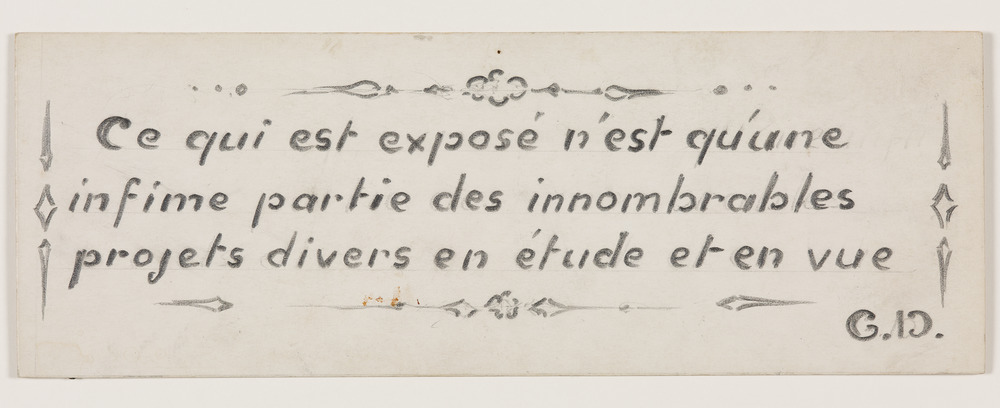 Ce qui est exposé n'est qu'une
infime partie des innombrables
projets divers en étude et en vue
G.D.